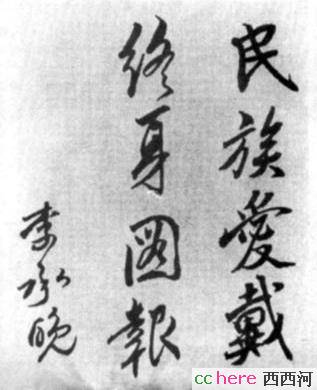 民族愛戴
終身圖報
李承晚
cchere 西西河